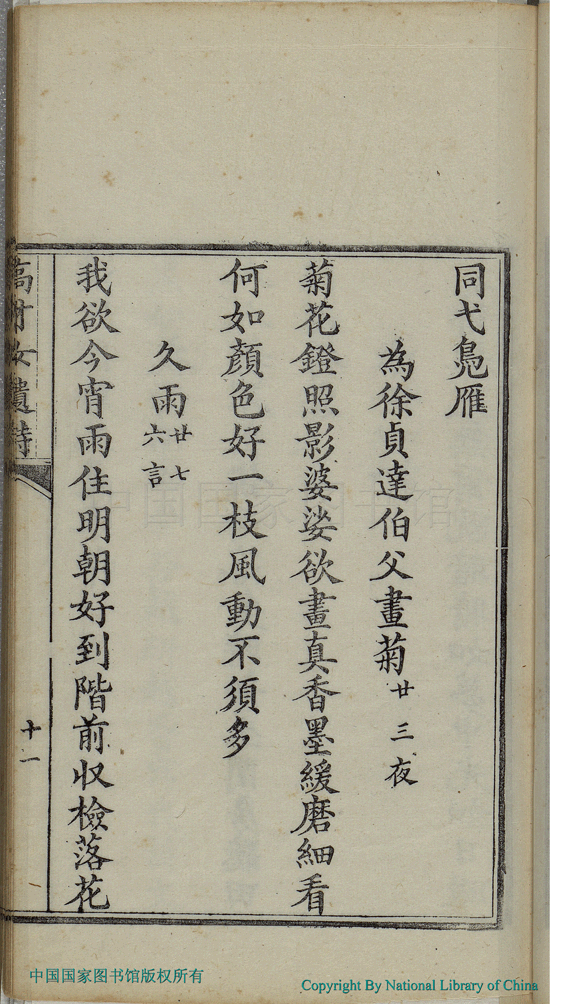 同弋鳧雁
為徐貞達伯父畫菊廿三夜
菊花鐙照影婆娑欲畫真香墨緩磨細看
何如顏色好一枝風動不須多
久雨廿七六言
我欲今宵雨住明朝好到階前収檢落花
高才女遺詩
十一
中国国家图书馆
中国国家图书馆版权所有
Copyright By National Library of China